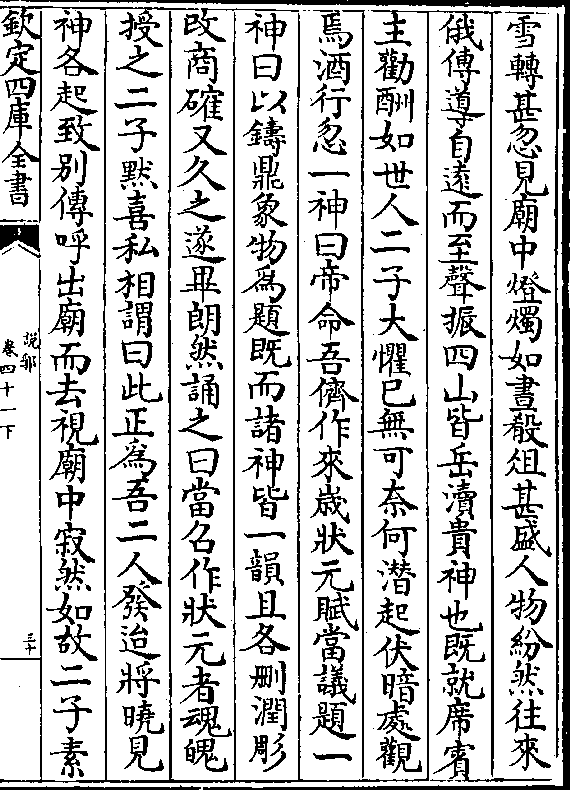 雪轉甚忽見廟中燈燭如晝殽俎甚盛人物紛然往來
俄傳導自遠而至聲振四山皆岳瀆貴神也既就席賓
主勸酬如世人二子大懼已無可奈何潛起伏暗處觀
焉酒行忽一神曰帝命吾儕作來歲狀元賦當議題一
神曰以鑄鼎象物爲題既而諸神皆一韻且各刪潤彫
改商確又久之遂畢朗然誦之曰當召作狀元者魂魄
授之二子默喜私相謂曰此正爲吾二人發迨將曉見
神各起致別傳呼出廟而去視廟中寂然如故二子素
欽定四庫全書
說郛
卷四十一下
三十